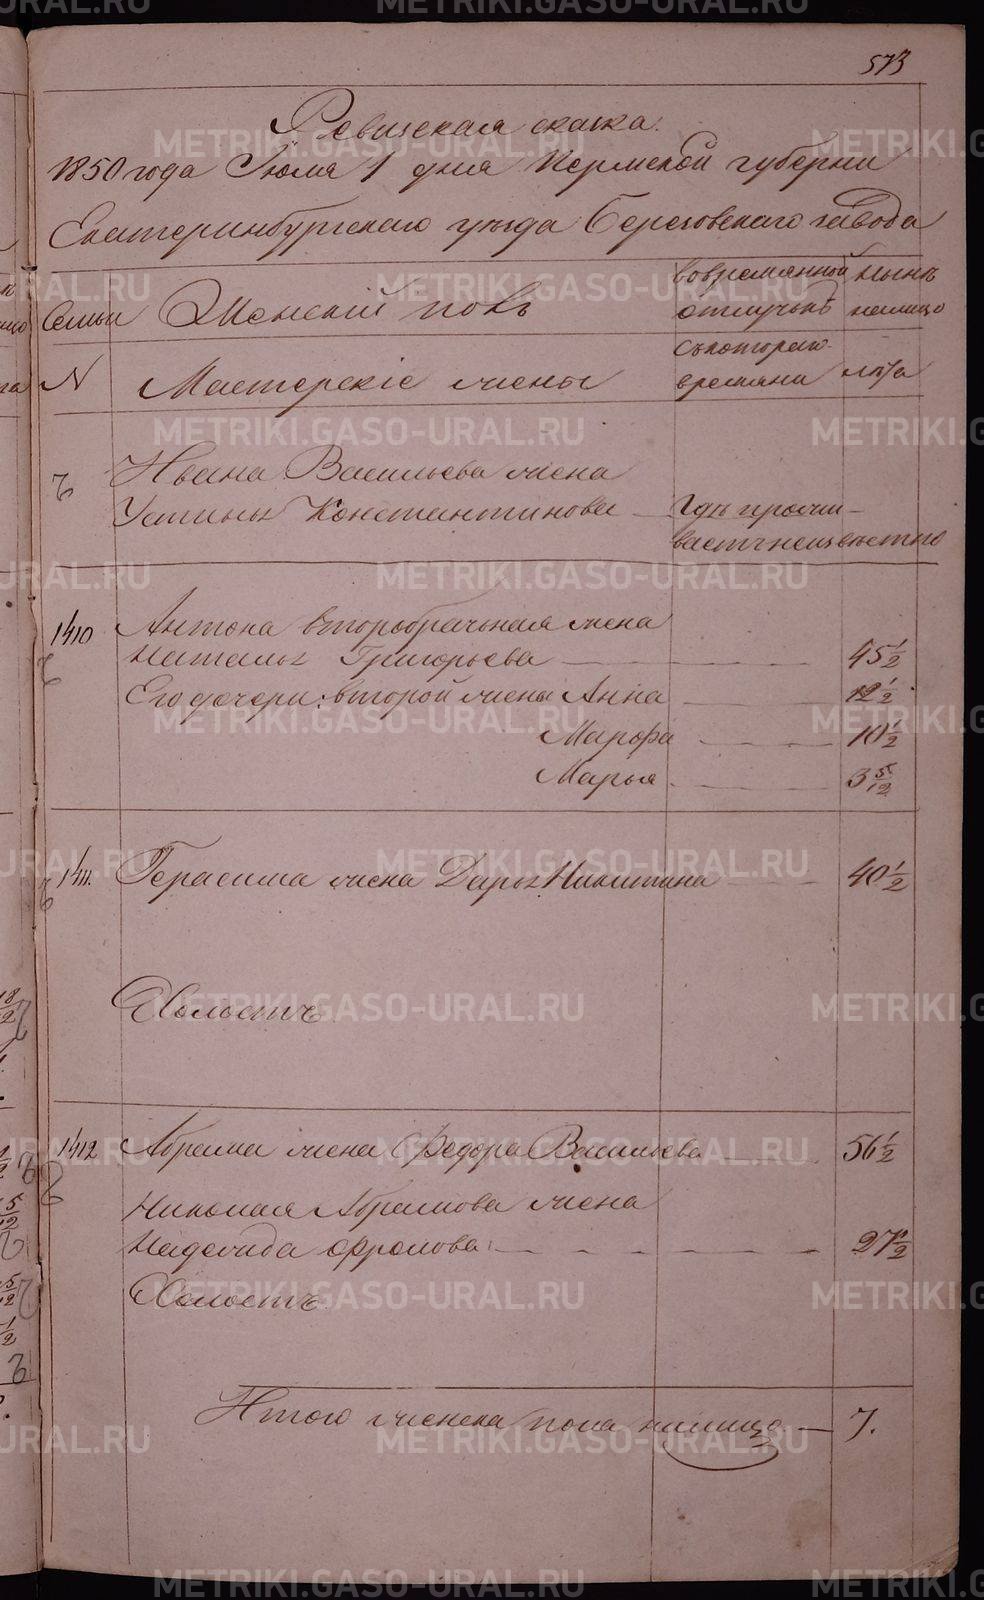 573
Ревизская сказка.
1850 года Июля 1 дня Пермской губернии
Екатеринбургскаго уезда Березовскаго завода
Семьи
Женский полъ
вовремянной отлучкѣ
ныне налицо
N
Мастерские жены
съкотораго времяни
лѣта
Ивана Васильева жена
Устинья Константинова
Гдѣ прожи-
ваетъ неизвестно
1410
Антона второбрачьная жена
Наталья Григорьева 45 1/2
Его дочери: второй жены Анна 12 1/2
Марфа 10 1/2
Марья 3 5/12
1411.
Герасима жена Дарья Никитина 40 1/2
Холостъ
1412
Абрама жена Федора Васильева 56 1/2
Николая Абрамова жена
Надежда Фролова 27 1/2
Холостъ
Итого женска пола налицо — 7.
METRIKI.GASO-URAL.RU